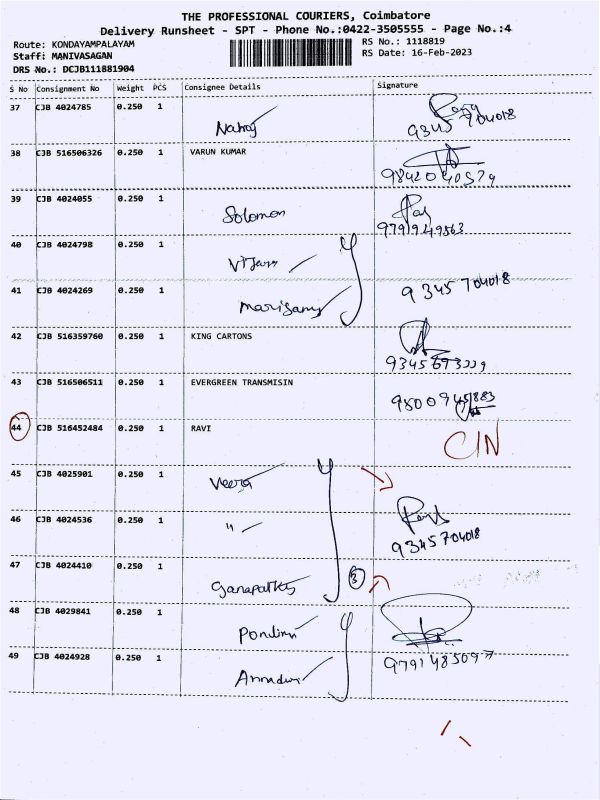 THE PROFESSIONAL COURIERS, Coimbatore
Delivery Runsheet - SPT - Phone No.:0422-3505555 - Page No.:4
Route: KONDAYAMPALAYAM
RS No.: 1118819
Staff: MANIVASAGAN
RS Date: 16-Feb-2023
DRS No.: DCJB111881904
S No Consignment No Weight PCS Consignee Details Signature
37 CJB 4024785 0.250 1
9345704018
38 CJB 516506326 0.250 1 VARUN KUMAR
9842040579
39 CJB 4024055 0.250 1 Solomon
9791949563
40 CJB 4024798 0.250 1
41 CJB 4024269 0.250 1 9345704018
42 CJB 516359760 0.250 1 KING CARTONS
43 CJB 516506511 0.250 1 EVERGREEN TRANSMISIN
44 CJB 516452484 0.250 1 RAVI
45 CJB 4025901 0.250 1 Veera
46 CJB 4024536 0.250 1 "
9345704018
47 CJB 4024410 0.250 1
3
48 CJB 4029841 0.250 1
49 CJB 4024928 0.250 1